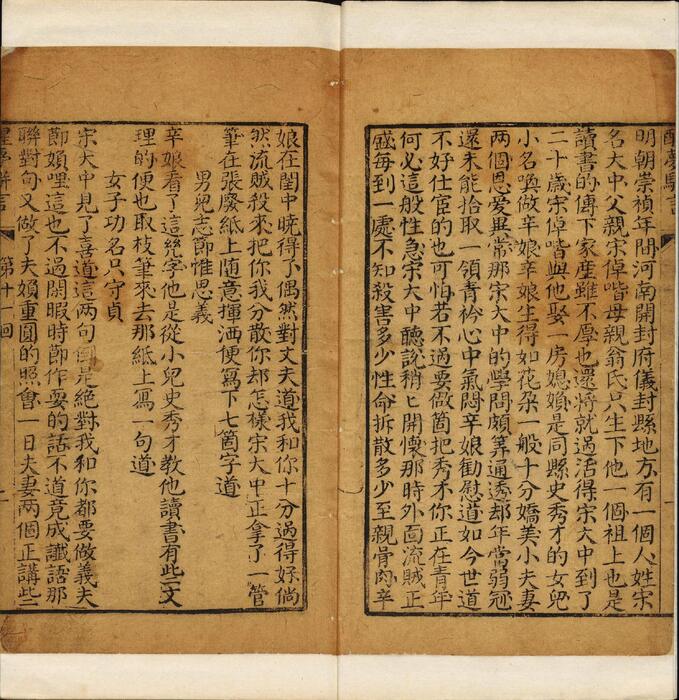 醒夢駢言
明朝崇禎年間河南開封府儀封縣地方有一個人姓宋
名大中父親宋倬喈母親翁氏只生下他一個祖上也是
讀書的傳下家產雖不厚也還將就過活得宋大中到了
二十歲宋倬喈與他娶一房媳婦是同縣史秀才的女兒
小名喚做辛娘辛娘生得如花朶一般十分嬌美小夫妻
兩個恩愛異常那宋大中的學問頗筭通透却年當弱冠
還未能拾取一領青衿心中氣悶辛娘勸慰道如今世道
不好仕宦的也可怕若不過要做箇把秀才你正在青年
何必這般性急宋大中聽說稍匕開懷那時外面流賊正
盛每到一處不知殺害多少性命拆散多少至親骨肉辛
娘在閨中曉得了偶然對丈夫道我和你十分過得好倘
然流賊殺來把你我分散你却怎樣宋大中正拿了一管
筆在張廢紙上隨意揮洒便寫下七箇字道
男兒志節惟思義
辛娘看了這幾字他是從小兒史秀才教他讀書有些文
理的便也取枝筆來去那紙上寫一句道
女子功名只守貞
宋大中見了喜道這兩句是絕對我和你都要做義夫
節婦哩這也不過閒暇時節作耍的話不道竟成讖語那
聯對句又做了夫婦重圓的照會一日夫妻兩個正講些
醒夢駢言
第十一回
二